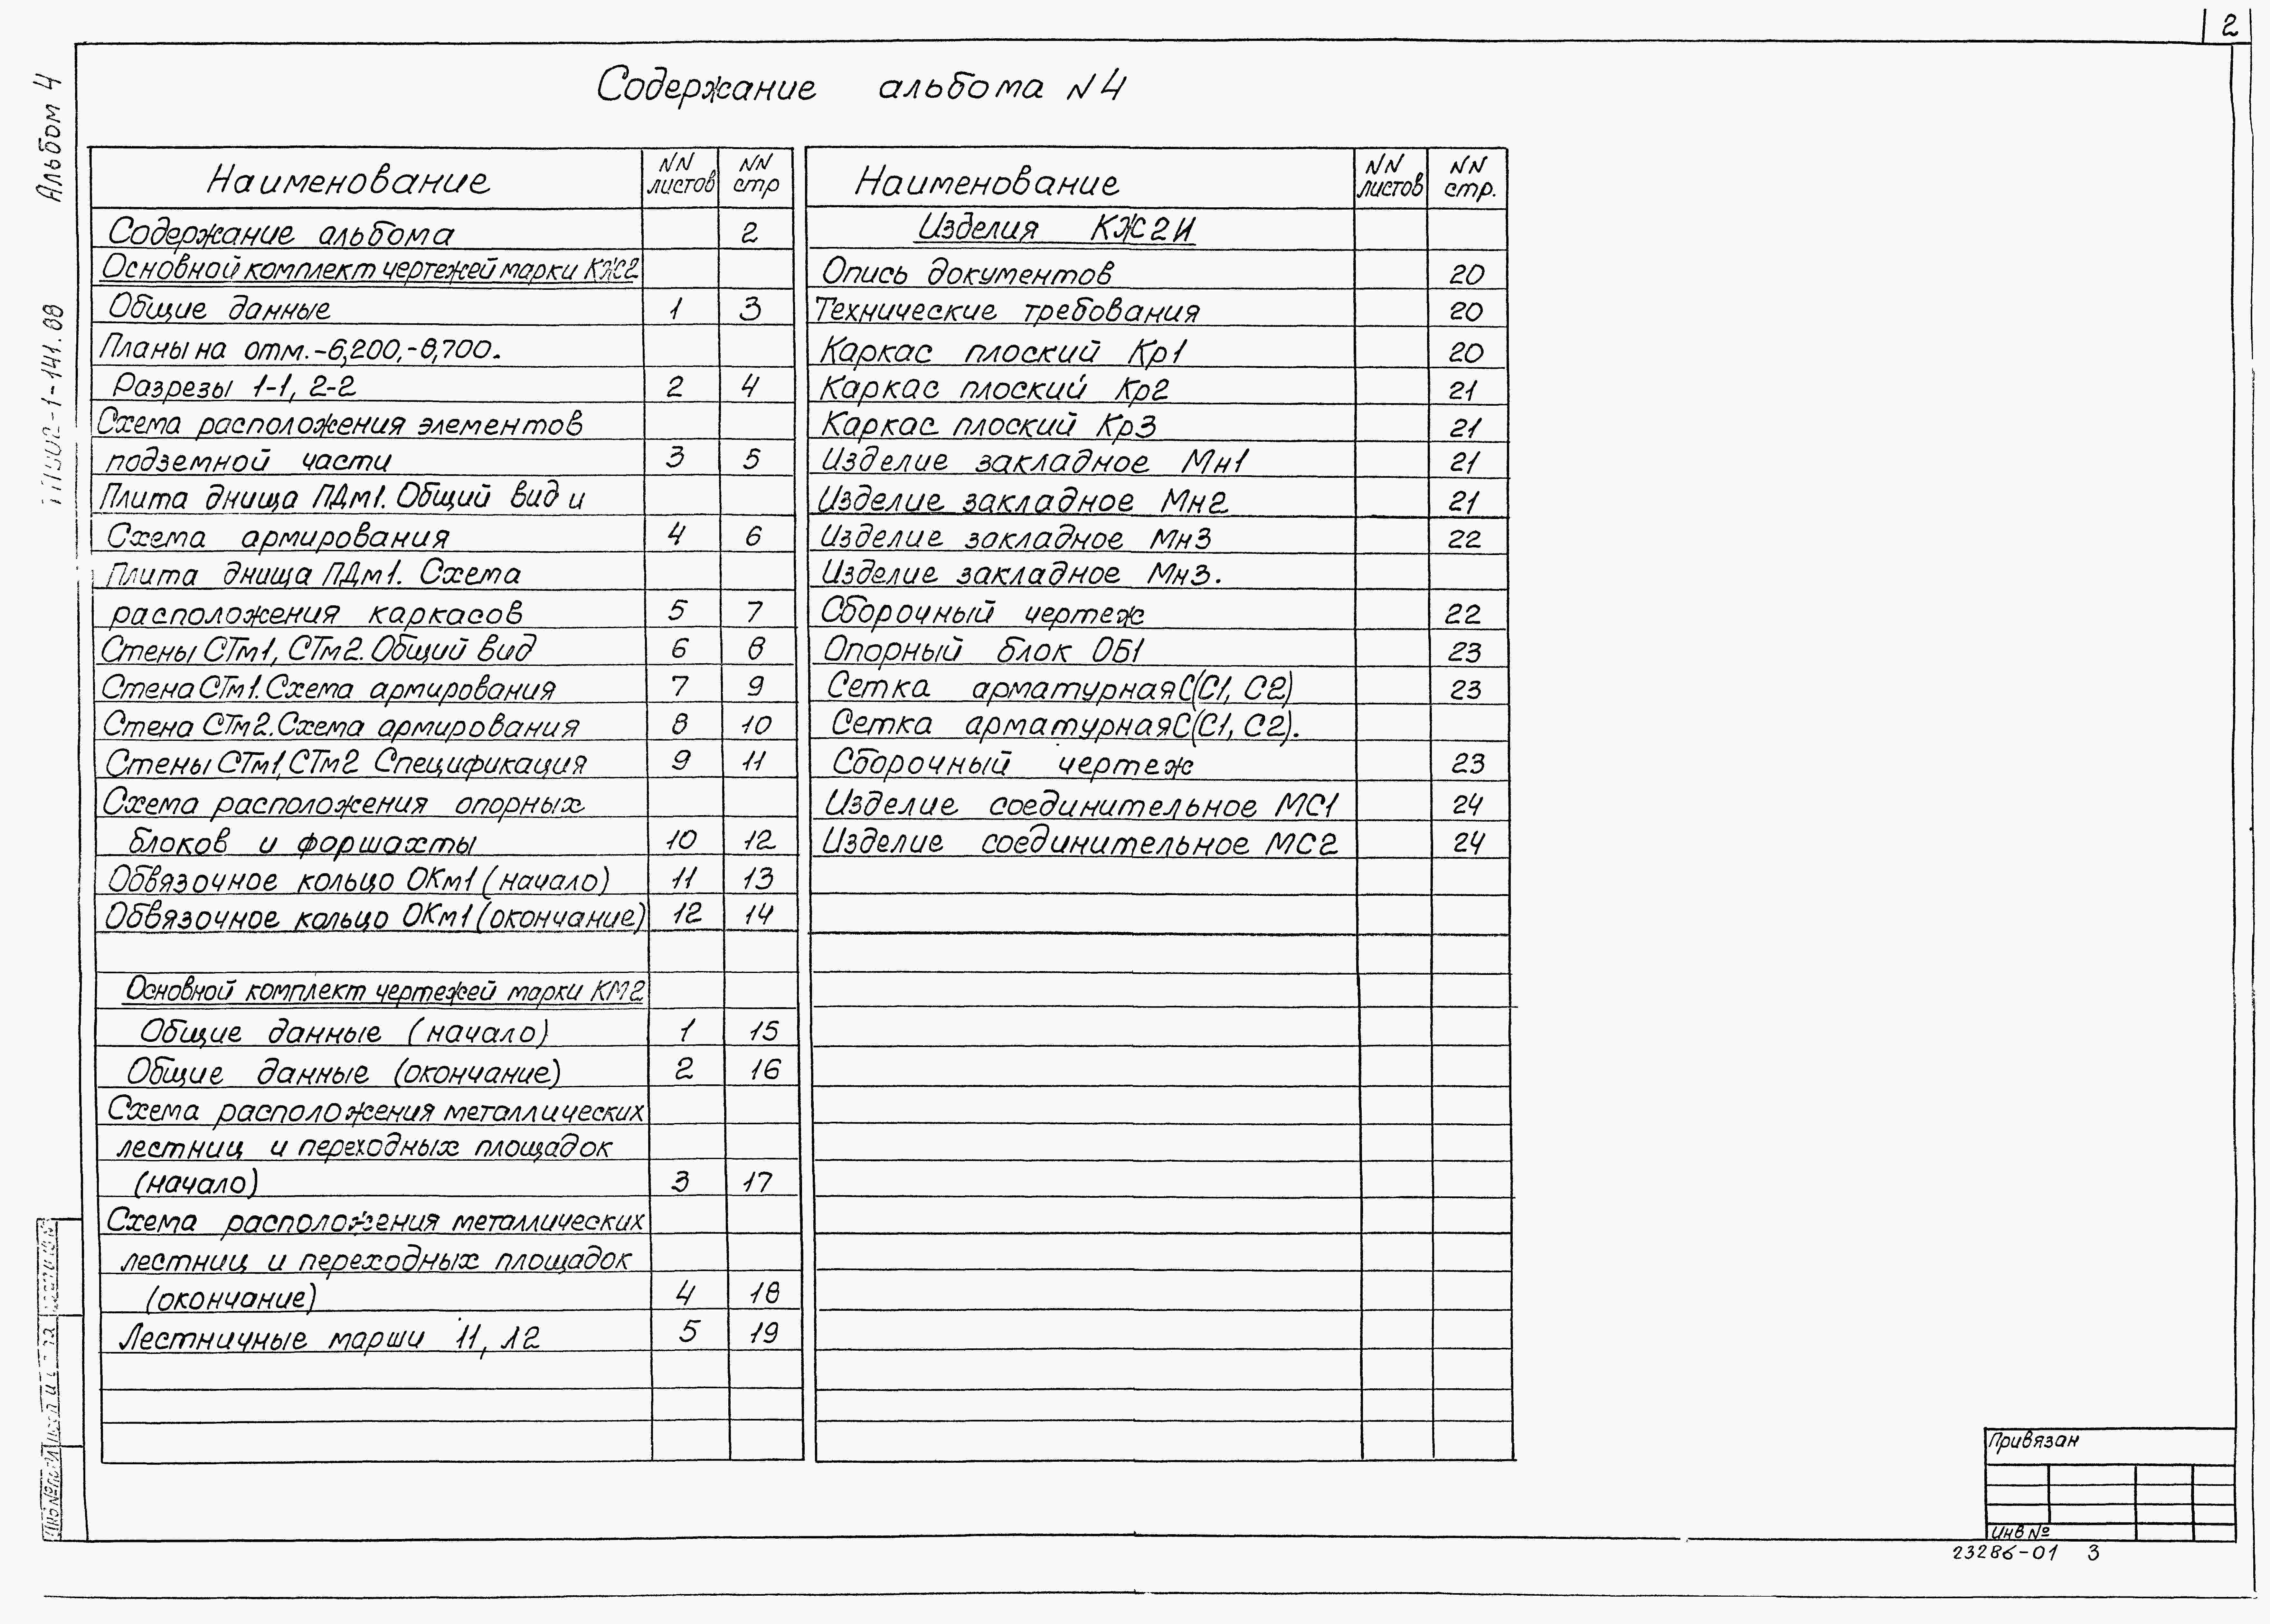 2
Содержание альбома N4
Альбом 4
Наименование NN листов NN стр
Содержание альбома 2
Основной комплект чертежей марки КЖ2
Общие данные 1 3
Планы на отм.-6,200,-8,700.
Разрезы 1-1, 2-2 2 4
Схема расположения элементов
подземной части 3 5
Плита днища ПДм1. Общий вид и
Схема армирования 4 6
Плита днища ПДм1. Схема
расположения каркасов 5 7
Стены СТм1, СТм2. Общий вид 6 8
Стена СТм1. Схема армирования 7 9
Стена СТм2. Схема армирования 8 10
Стены СТм1, СТм2 Спецификация 9 11
Схема расположения опорных
блоков и форшахты 10 12
Обвязочное кольцо ОКм1 (начало) 11 13
Обвязочное кольцо ОКм1 (окончание) 12 14
Основной комплект чертежей марки КМ2
Общие данные (начало) 1 15
Общие данные (окончание) 2 16
Схема расположения металлических
лестниц и переходных площадок
(начало) 3 17
Схема расположения металлических
лестниц и переходных площадок
(окончание) 4 18
Лестничные марши 11, л2 5 19
Наименование NN листов NN стр.
Изделия КЖ2И
Опись документов 20
Технические требования 20
Каркас плоский Кр1 20
Каркас плоский Кр2 21
Каркас плоский Кр3 21
Изделие закладное Мн1 21
Изделие закладное Мн2 21
Изделие закладное Мн3 22
Изделие закладное Мн3.
Сборочный чертеж 22
Опорный блок ОБ1 23
Сетка арматурная С(С1, С2) 23
Сетка арматурная С(С1, С2).
Сборочный чертеж 23
Изделие соединительное МС1 24
Изделие соединительное МС2 24
Привязан
Инв №
23286-01 3